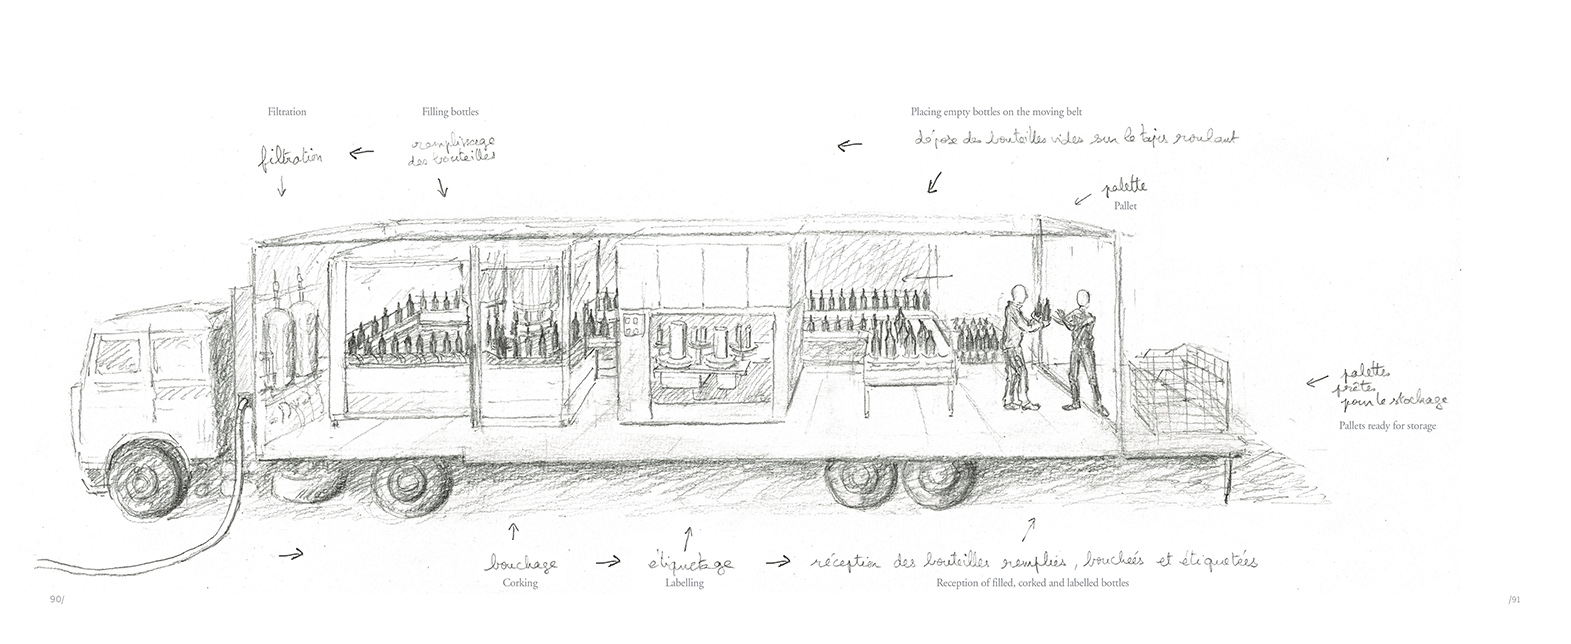 Filtration
Filling bottles
Placing empty bottles on the moving belt
filtration
remplissage
des bouteilles
dépose des bouteilles vides sur le tapis roulant
palette
Pallet
palettes
prêtes
pour le stockage
Pallets ready for storage
bouchage
étiquetage
réception des bouteilles remplies, bouchées et étiquetées
Corking
Labelling
Reception of filled, corked and labelled bottles
90/
/91